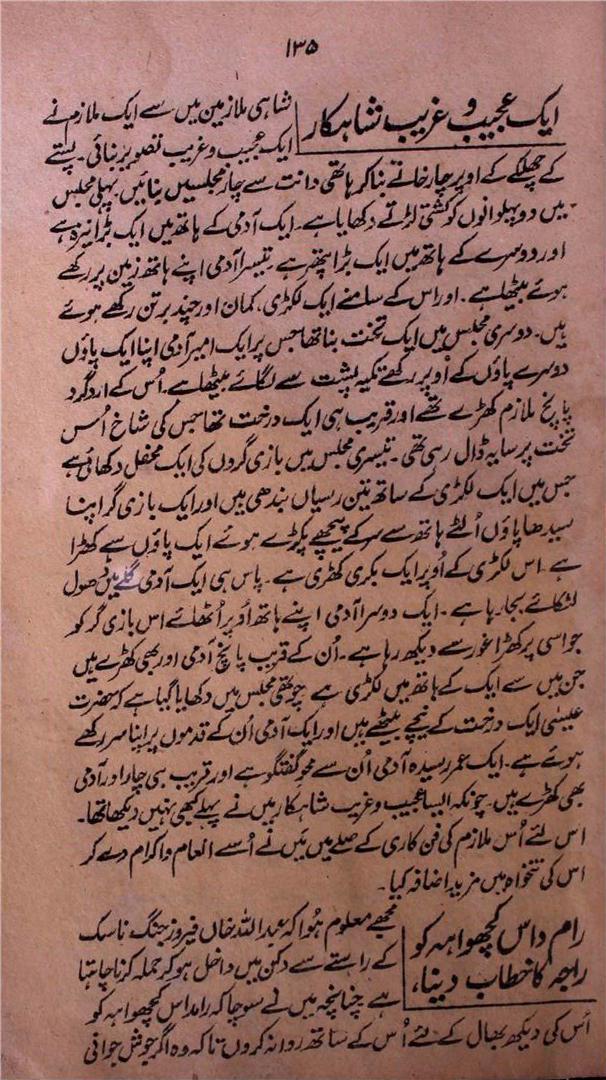 ۱۳۵
ایک عجیب و غریب شاہکار
شاہی ملازمین میں سے ایک ملازم نے
ایک عجیب و غریب تصویر بنائی۔ پستے
کے چھلکے کے اوپر چار خانے بنا کر ہاتھی دانت سے چار مجلسیں بنائیں۔ پہلی مجلس
میں دو پہلوانوں کو کشتی لڑتے دکھایا ہے۔ ایک آدمی کے ہاتھ میں ایک بڑا نیزہ ہے
اور دوسرے کے ہاتھ میں ایک بڑا پتھر ہے۔ تیسرا آدمی اپنے ہاتھ زمین پر رکھے
ہوئے بیٹھا ہے۔ اور اس کے سامنے ایک لکڑی، کمان اور چند برتن رکھے ہوئے
ہیں۔ دوسری مجلس میں ایک تخت بنا تھا جس پر ایک امیر آدمی اپنا ایک پاؤں
دوسرے پاؤں کے اُوپر رکھے تکیہ پشت سے لگائے بیٹھا ہے۔ اُس کے اردگرد
پانچ ملازم کھڑے تھے اور قریب ہی ایک درخت تھا جس کی شاخ اُس
تخت پر سایہ ڈال رہی تھی۔ تیسری مجلس میں بازی گروں کی ایک محفل دکھائی ہے
جس میں ایک لکڑی کے ساتھ تین رسیاں بندھی ہیں اور ایک بازی گر اپنا
سیدھا پاؤں اُلٹے ہاتھ سے سر کے پیچھے پکڑے ہوئے ایک پاؤں سے کھڑا
ہے۔ اس لکڑی کے اُوپر ایک بکری کھڑی ہے۔ پاس ہی ایک آدمی گلے میں ڈھول
لٹکائے بجا رہا ہے۔ ایک دوسرا آدمی اپنے ہاتھ اُوپر اُٹھائے اس بازی گر کو
جو اسی پر کھڑا غور سے دیکھ رہا ہے۔ اُن کے قریب پانچ آدمی اور بھی کھڑے ہیں
جن میں سے ایک کے ہاتھ میں لکڑی ہے چوتھی مجلس میں دکھایا گیا ہے کہ حضرت
عیسیٰ ایک درخت کے نیچے بیٹھے ہیں اور ایک آدمی اُن کے قدموں پر اپنا سر رکھے
ہوئے ہے۔ ایک عمر رسیدہ آدمی اُن سے محوِ گفتگو ہے اور قریب ہی چار اور آدمی
بھی کھڑے ہیں۔ چونکہ ایسا عجیب و غریب شاہکار میں نے پہلے کبھی نہیں دیکھا تھا۔
اس لئے اُس ملازم کی فن کاری کے صلے میں میں نے اُسے انعام و اکرام دے کر
اس کی تنخواہ میں مزید اضافہ کیا۔
رام داس کچھواہہ کو
راجہ کا خطاب دینا،
مجھے معلوم ہُوا کہ عبداللہ خاں فیروز جنگ ناسک
کے راستے سے دکن میں داخل ہو کر حملہ کرنا چاہتا
ہے چنانچہ میں نے سوچا کہ رامداس کچھواہہ کو
اُس کی دیکھ بھال کے لئے اُس کے ساتھ روانہ کروں تاکہ وہ اگر جوشِ جوانی